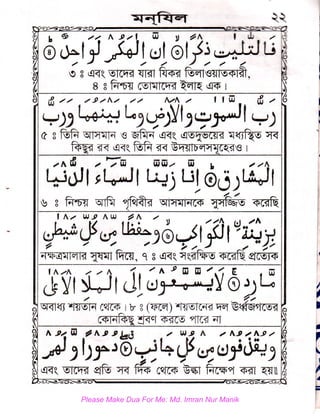 মনযিল ২২
فَالتّٰلِيٰتِ ذِكْرًا ۝ اِنَّ اِلٰهَكُمْ لَوَاحِدٌ ۝
৩ ঃ এবং তাদের যারা যিকর তিলাওয়াতকারী,
৪ ঃ নিশ্চয় তোমাদের ইলাহ এক।
رَبُّ السَّمٰوٰتِ وَالْاَرْضِ وَمَا بَيْنَهُمَا وَرَبُّ
৫ ঃ তিনি আসমান ও জমিন এবং এতদুভয়ের মধ্যস্থিত সব
কিছুর রব এবং তিনি রব উদয়াচলসমূহেরও।
الْمَشَارِقِ ۝ اِنَّا زَيَّنَّا السَّمَآءَ الدُّنْيَا
৬ ঃ নিশ্চয় আমি পৃথিবীর আসমানকে সুসজ্জিত করেছি
بِزِيْنَةِ ۨالْكَوَاكِبِ ۝ وَحِفْظًا مِّنْ كُلِّ شَيْطٰنٍ
নক্ষত্রমালার সুষমা দিয়ে, ৭ ঃ এবং সংরক্ষিত করেছি প্রত্যেক
مَّارِدٍ ۝ لَا يَسَّمَّعُوْنَ اِلَى الْمَلَاِ الْاَعْلٰى
অবাধ্য শয়তান থেকে। ৮ ঃ (ফলে) শয়তানের দল উর্ধ্বজগতের
কোনকিছু শ্রবণ করতে পারে না
وَيُقْذَفُوْنَ مِنْ كُلِّ جَانِبٍ ۝ دُحُوْرًا وَّلَهُمْ
এবং তাদের প্রতি সব দিক থেকে উল্কা নিক্ষেপ করা হয়॥
Please Make Dua For Me. Md. Imran Nur Manik